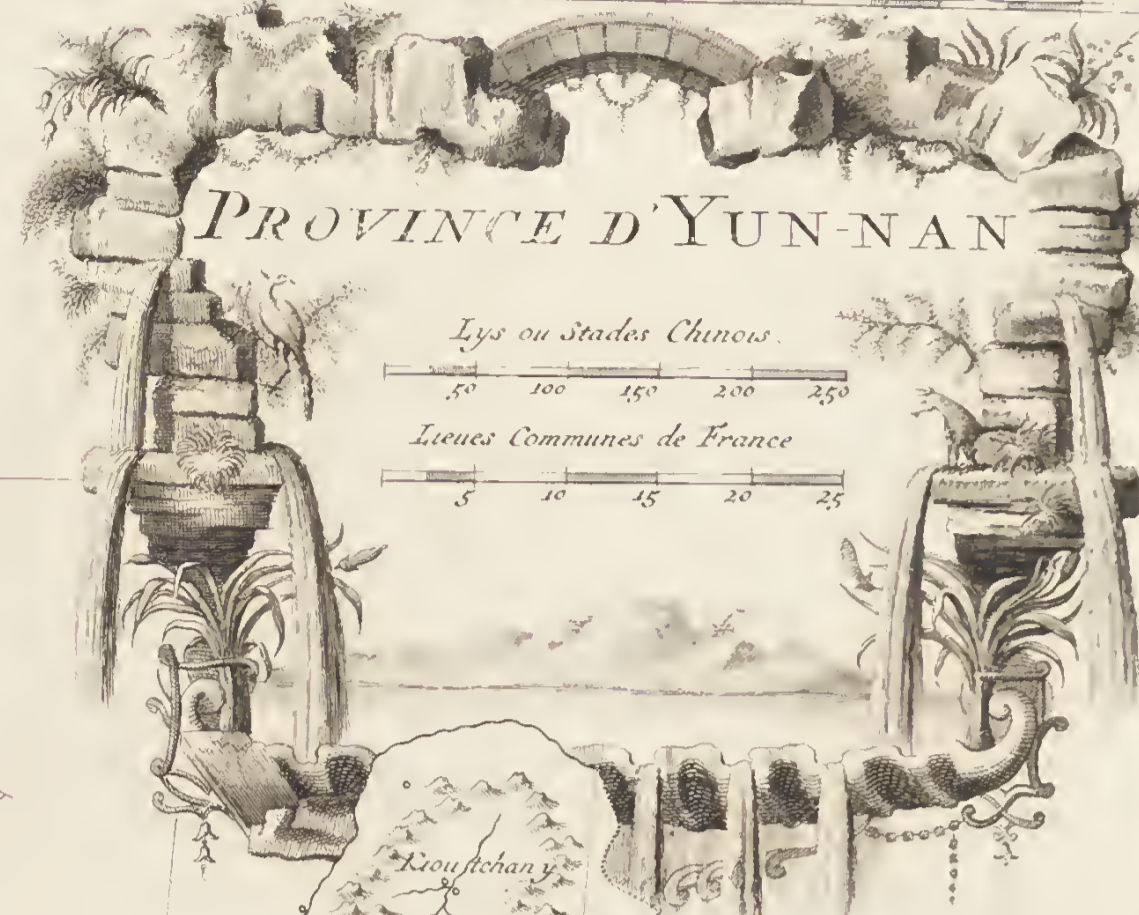 PROVINCE D'YUN-NAN
Lys ou Stades Chinois.
50 100 150 200 250
Lieues Communes de France
5 10 15 20 25
Kiouſtchany